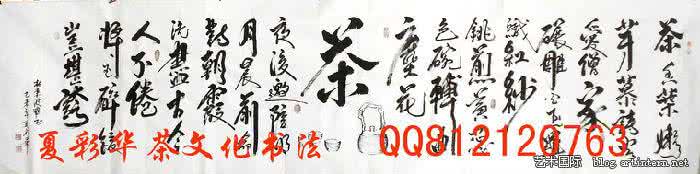 茶香葉嫩
芽慕詩客
愛僧家
碾雕白玉羅
織紅紗
銚煎黃蕊
色碗轉曲
塵花
茶
夜後邀陪明
月晨前命
對朝霞
洗盡古今
人不倦
將至醉後
豈堪誇
夏彩华 茶文化书法 QQ812120763
艺术国际
blog.artintern.net